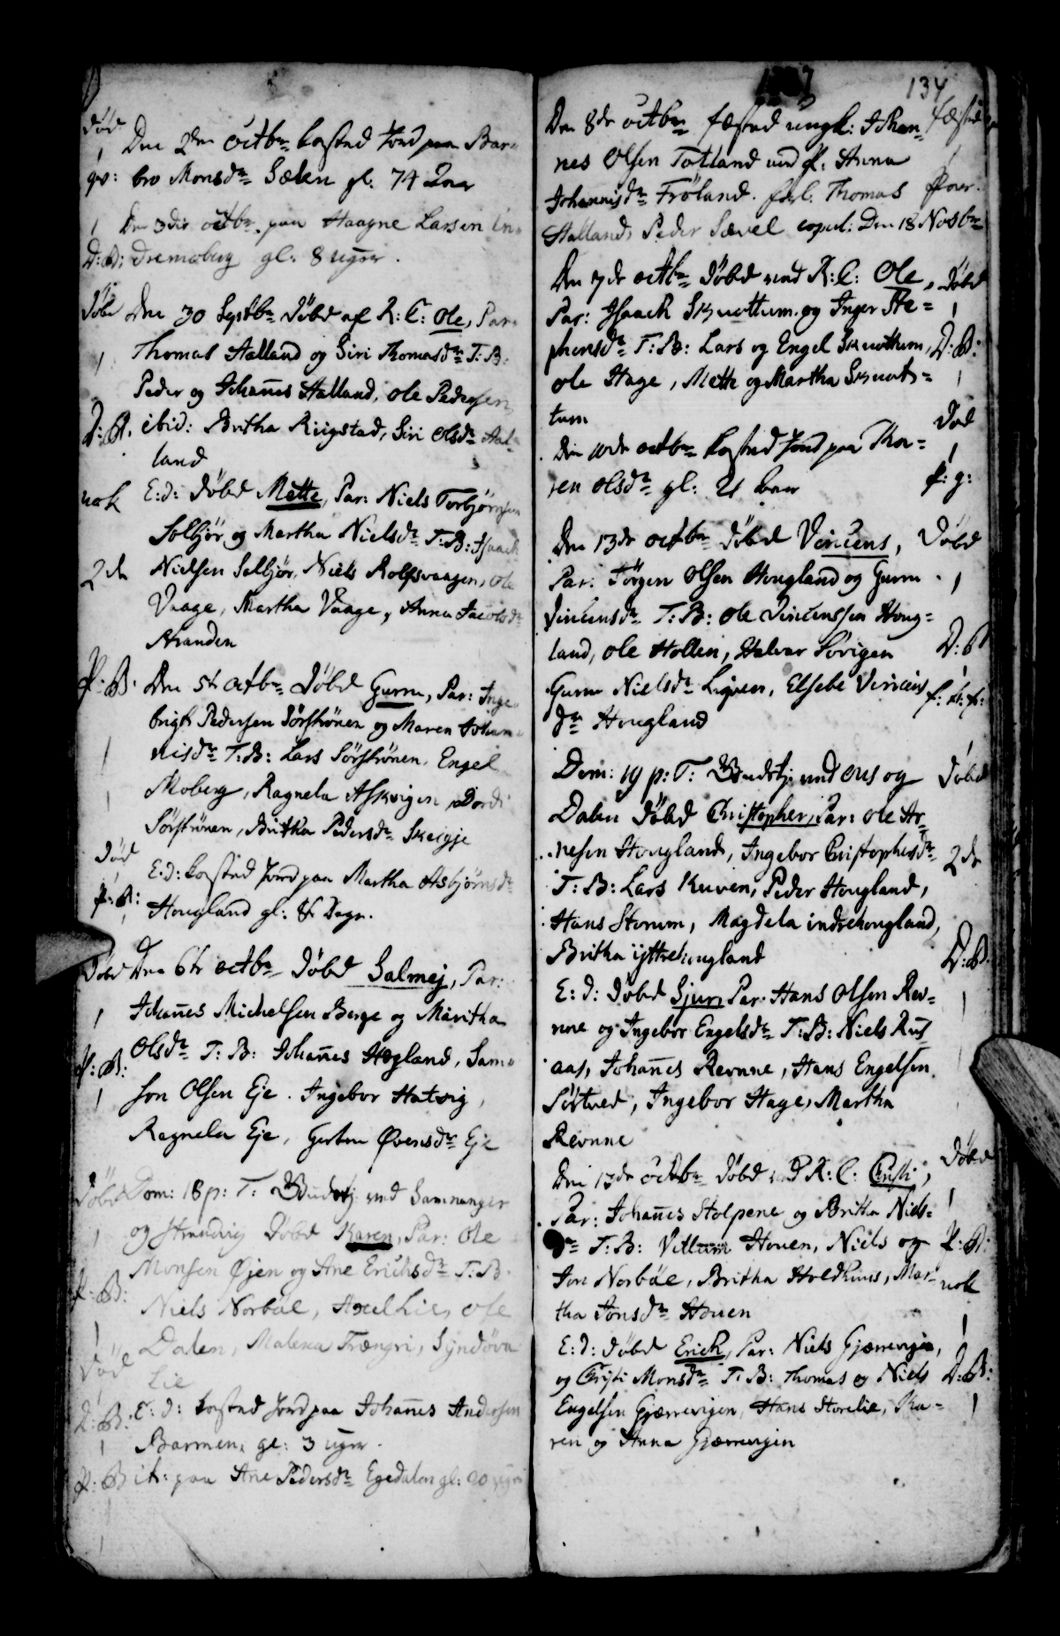 død
Den 2den octbr kasted Jord paa Bar-
bro Monsdr Sælen gl: 74 Aar
Den 3die octbr paa Haagne Larsen
gl: 8 uger.
D: B:
Døbt
Den 30 Septbr Døbd af R: C: Ole, Par:
Thomas Halland og Siri Thomasdr T: B:
Peder og Johañes Halland, Ole Pedersen
D: B.
ibid: Britha Riigstad, Siri Olsdr Hal-
land
nok
E: d: Døbd Mette, Par: Niels Torbjörnsen
Solbjør og Martha Nielsdr T: B: Isaach
2de
Nielsen Solbjør, Niels Rolfsvaagen, Ole
Vaage, Martha Vaage, Anna Jacobsdr
Stranden
P: B:
Den 5te octbr Døbd Gurre, Par: Inge-
brigt Pedersen Sörströnen og Maren Johan-
nisdr T: B: Lars Sörströnen, Engel
Moberg, Ragnela Askvigen, Dordi
Sörströnen, Britha Pedersdr Skeigje
Død
E: d: kasted Jord paa Martha Asbjørnsdr
P: B:
Hougland gl: 8 Dage.
Døbd
Den 6te octbr Døbd Salmej, Par:
Johañes Michelsen Berge og Maritha
Olsdr T: B: Johañes Hegland, Sam-
P: B:
son Olsen Eje. Ingebor Hatvig,
Ragnela Eje, Øvensdr Eje
Døbd
Dom: 18 p: T: ved Samnanger
og Strandvig Døbd Karen, Par: Ole
Monsen Øjen og Ane Erichsdr T: B:
P: B:
Niels Norbøe, Axel Lie, Ole
Dalen, Malena Trængri, Syndøva
Lie
Død
D: B:
E: d: kasted Jord paa Johañes Andersen
Barmen, gl: 3 uger.
P: B
it: paa Ane Pedersdr Egedalen gl: 20 uger
134
Den 8de octbr fæsted ungk: Johan-
fæsted
nes Olsen Totland med p: Anna
Johannisdr Fröland. forl: Thomas
Halland, Peder Sævel copul: Den 18 Novbr
Den 7de octbr Døbd ved R: C: Ole,
Døbd
Par: Isaach Skuottum og Inger Ste-
phensdr T: B: Lars og Engel Skuottum,
D: B:
Ole Hage, Mette og Martha Skuot-
tum
Død
Den 10de octbr kasted Jord paa Ka-
ren Olsdr gl: 21 Aar
P: g:
Den 13de octbr Døbd Vincens,
Døbd
Par: Jörgen Olsen Hougland og Gurre
Vincensdr T: B: Ole Vincenssen Houg-
land, Ole Hollen, Halvar Sörigen
D: B
Gurre Nielsdr Liqven, Elsebe Vincens
dr Hougland
Dom: 19 p: T: ved Ous og
Døbd
Dalen Døbd Christopher, Par: Ole Ar-
nesen Hougland, Ingebor Christophersdr
2de
T: B: Lars Kuven, Peder Hougland,
Hans Storum, Magdela indrehougland,
Britha yttrehougland
D: B.
E: d: Døbd Sjur Par: Hans Olsen Rev-
nne og Ingebor Engelsdr T: B: Niels Rus-
aas, Johañes Revnne, Hans Engelsen
Sörtved, Ingebor Hage, Martha
Revnne
Døbd
Den 13de octbr Døbd ved R: C: Christi,
Par: Johañes Stolpene og Britha Niels-
dr T: B: Villum Houen, Niels og
P: B:
Jon Norbøe, Britha Holdhuus, Mar-
nok
tha Jonsdr Houen
E: d: Døbd Erich, Par: Niels Gjærrevigen,
og Christi Monsdr T: B: Thomas og Niels
D: B:
Engelsen Gjærrevigen, Hans Storelie, Ka-
ren og Anna Gjærrevigen